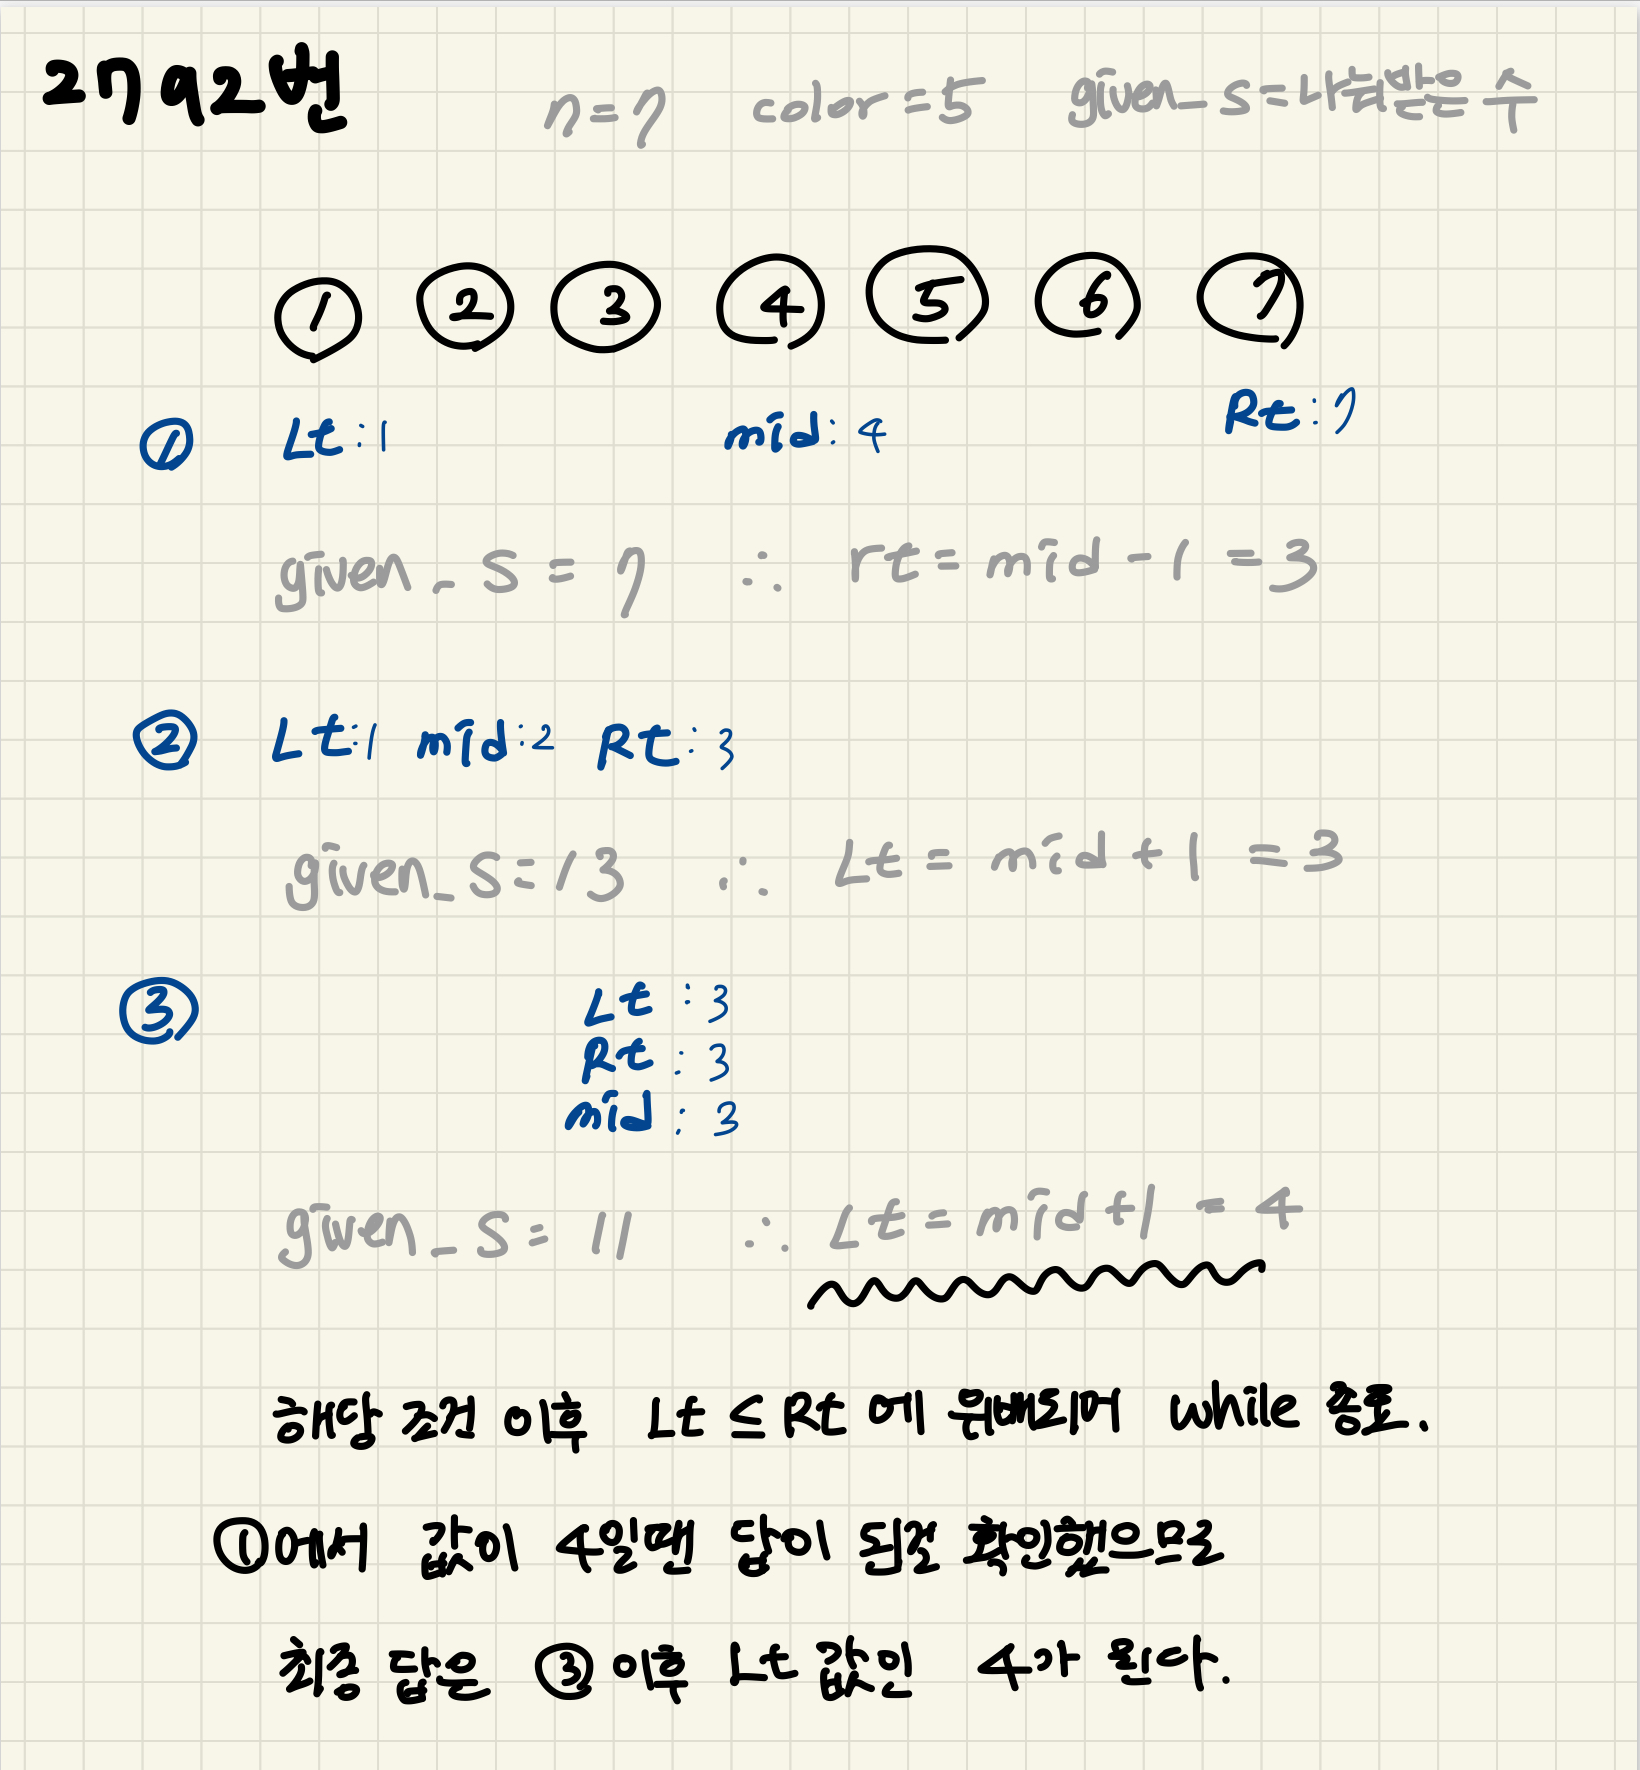 2792번 n=7 color=5 given_s=나눠받은 수
① ② ③ ④ ⑤ ⑥ ⑦
① Lt:1 mid:4 Rt:7
given_s=7 ∴ rt=mid-1=3
② Lt:1 mid:2 Rt:3
given_s=13 ∴ Lt=mid+1=3
③ Lt:3
Rt:3
mid:3
given_s=11 ∴ Lt=mid+1=4
해당 조건 이후 Lt≤Rt에 위배되며 while 종료.
①에서 값이 4일땐 답이 된걸 확인했으므로
최종 답은 ③이후 Lt값인 4가 된다.